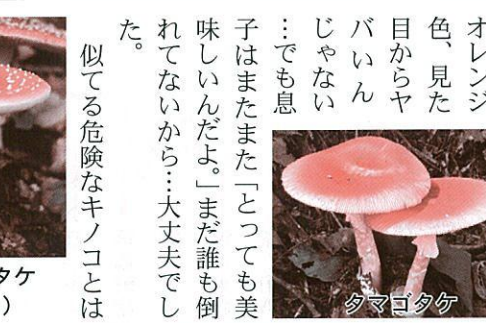 オレンジ
色、見た
目からヤ
バいん
じゃない
…でも息
子はまたまた「とっても美
味しいんだよ。」まだ誰も倒
れてないから…大丈夫でし
た。
似てる危険なキノコとは
タマゴタケ
タケ
）